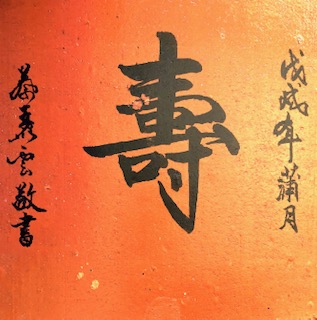 戊戌年蒲月
壽
雲敬書